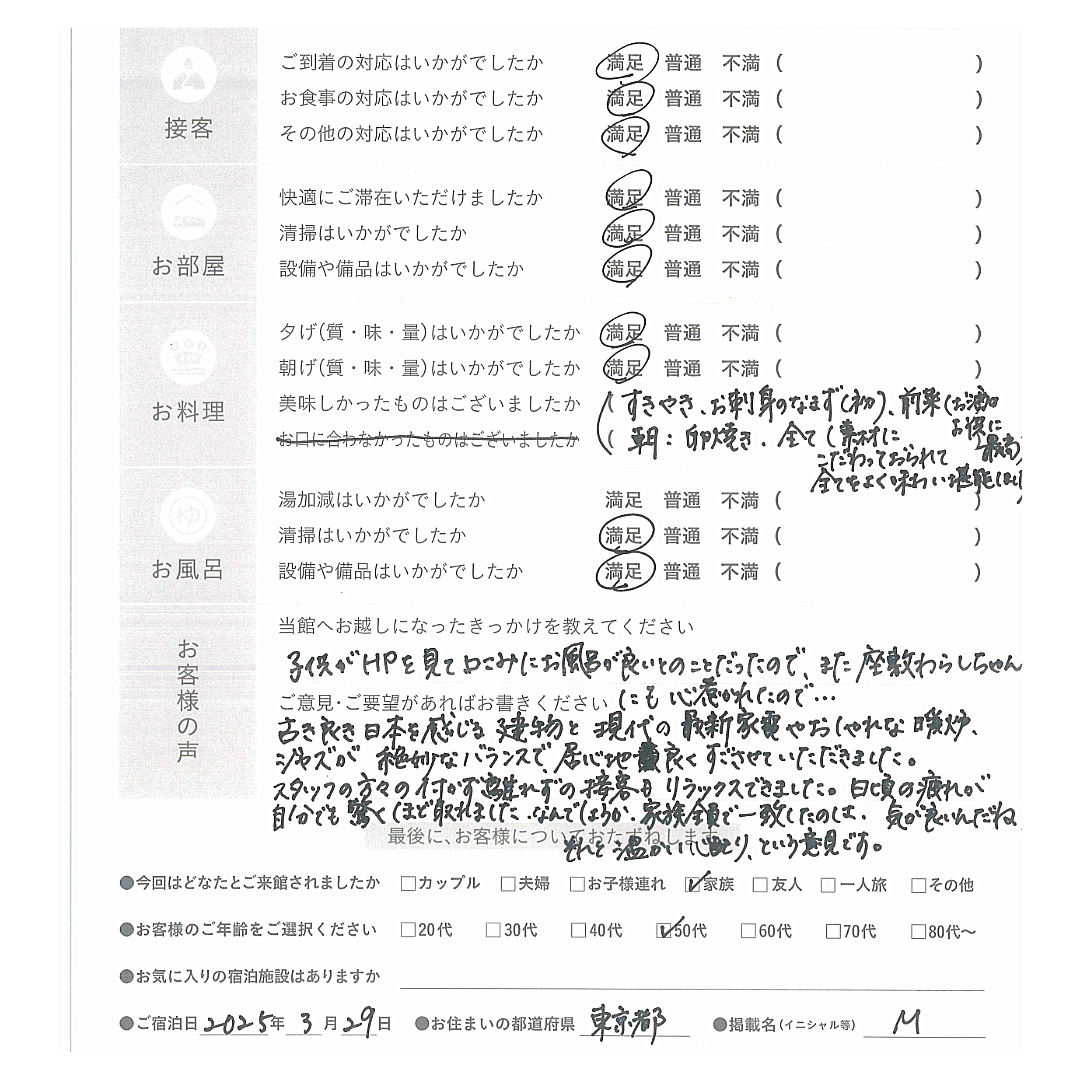 接客
ご到着の対応はいかがでしたか 満足 普通 不満 ( )
お食事の対応はいかがでしたか 満足 普通 不満 ( )
その他の対応はいかがでしたか 満足 普通 不満 ( )
お部屋
快適にご滞在いただけましたか 満足 普通 不満 ( )
清掃はいかがでしたか 満足 普通 不満 ( )
設備や備品はいかがでしたか 満足 普通 不満 ( )
お料理
夕げ(質・味・量)はいかがでしたか 満足 普通 不満 ( )
朝げ(質・味・量)はいかがでしたか 満足 普通 不満 ( )
美味しかったものはございましたか ( すきやき、お刺身のなまず(初)、前菜(お酒
お口に合わなかったものはございましたか ( 朝:卵焼き、全て(素材に
こだわっておられて
全てをよく味わい堪能
最高)
お風呂
湯加減はいかがでしたか 満足 普通 不満 ( )
清掃はいかがでしたか 満足 普通 不満 ( )
設備や備品はいかがでしたか 満足 普通 不満 ( )
お客様の声
当館へお越しになったきっかけを教えてください
子供がHPを見て口こみにお風呂が良いとのことだったので、また座敷わらしちゃん
にも心惹かれたので…
ご意見・ご要望があればお書きください
古き良き日本を感じる建物と現代の最新家電やおしゃれな暖炉、
ジャズが絶妙なバランスで、居心地良くすごさせていただきました。
スタッフの方々の付かず離れずの接客もリラックスできました。日頃の疲れが
自分でも驚くほど取れました。なんでしょうか、家族全員で一致したのは、気が良いんだね
それと温かい心配り、という意見です。
最後に、お客様についておたずねします
●今回はどなたとご来館されましたか □カップル □夫婦 □お子様連れ ☑家族 □友人 □一人旅 □その他
●お客様のご年齢をご選択ください □20代 □30代 □40代 ☑50代 □60代 □70代 □80代〜
●お気に入りの宿泊施設はありますか
●ご宿泊日 2025年 3月29日 ●お住まいの都道府県 東京都 ●掲載名(イニシャル等) M